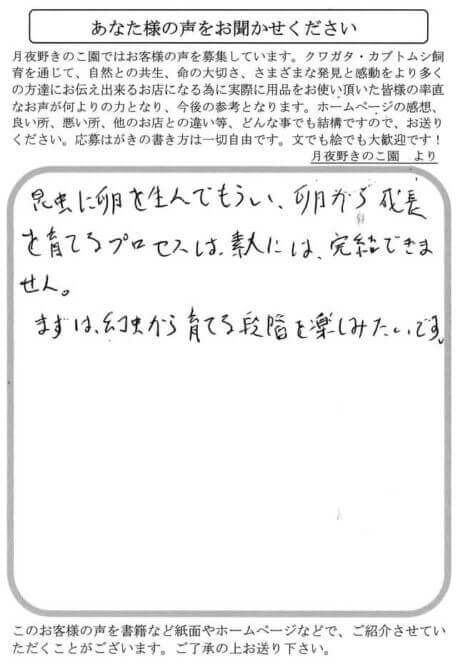 あなた様の声をお聞かせください
月夜野きのこ園ではお客様の声を募集しています。クワガタ・カブトムシ飼
育を通じて、自然との共生、命の大切さ、さまざまな発見と感動をより多く
の方達にお伝え出来るお店になる為に実際に用品をお使い頂いた皆様の率直
なお声が何よりの力となり、今後の参考となります。ホームページの感想、
良い所、悪い所、他のお店との違い等、どんな事でも結構ですので、お送り
ください。応募はがきの書き方は一切自由です。文でも絵でも大歓迎です！
月夜野きのこ園　より
昆虫に卵を生んでもらい、卵から成長
を育てるプロセスは、素人には、完結できま
せん。
まずは、幼虫から育てる段階を楽しみたいです。
このお客様の声を書籍など紙面やホームページなどで、ご紹介させてい
ただくことがございます。ご了承の上お送り下さい。